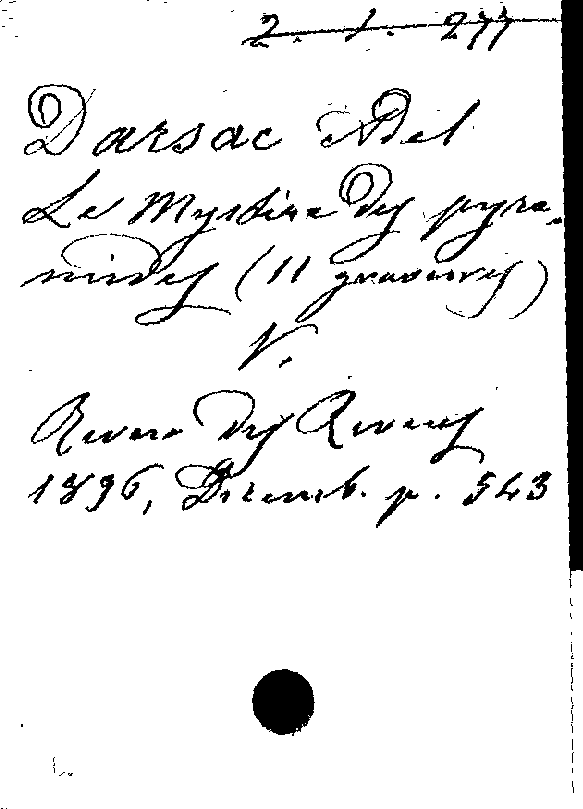 2. 1. 277
Darsac Adel
Le Mystère des pyra-
mides (11 gravures)
V.
Revue des Revues
1896, Decemb. p. 543